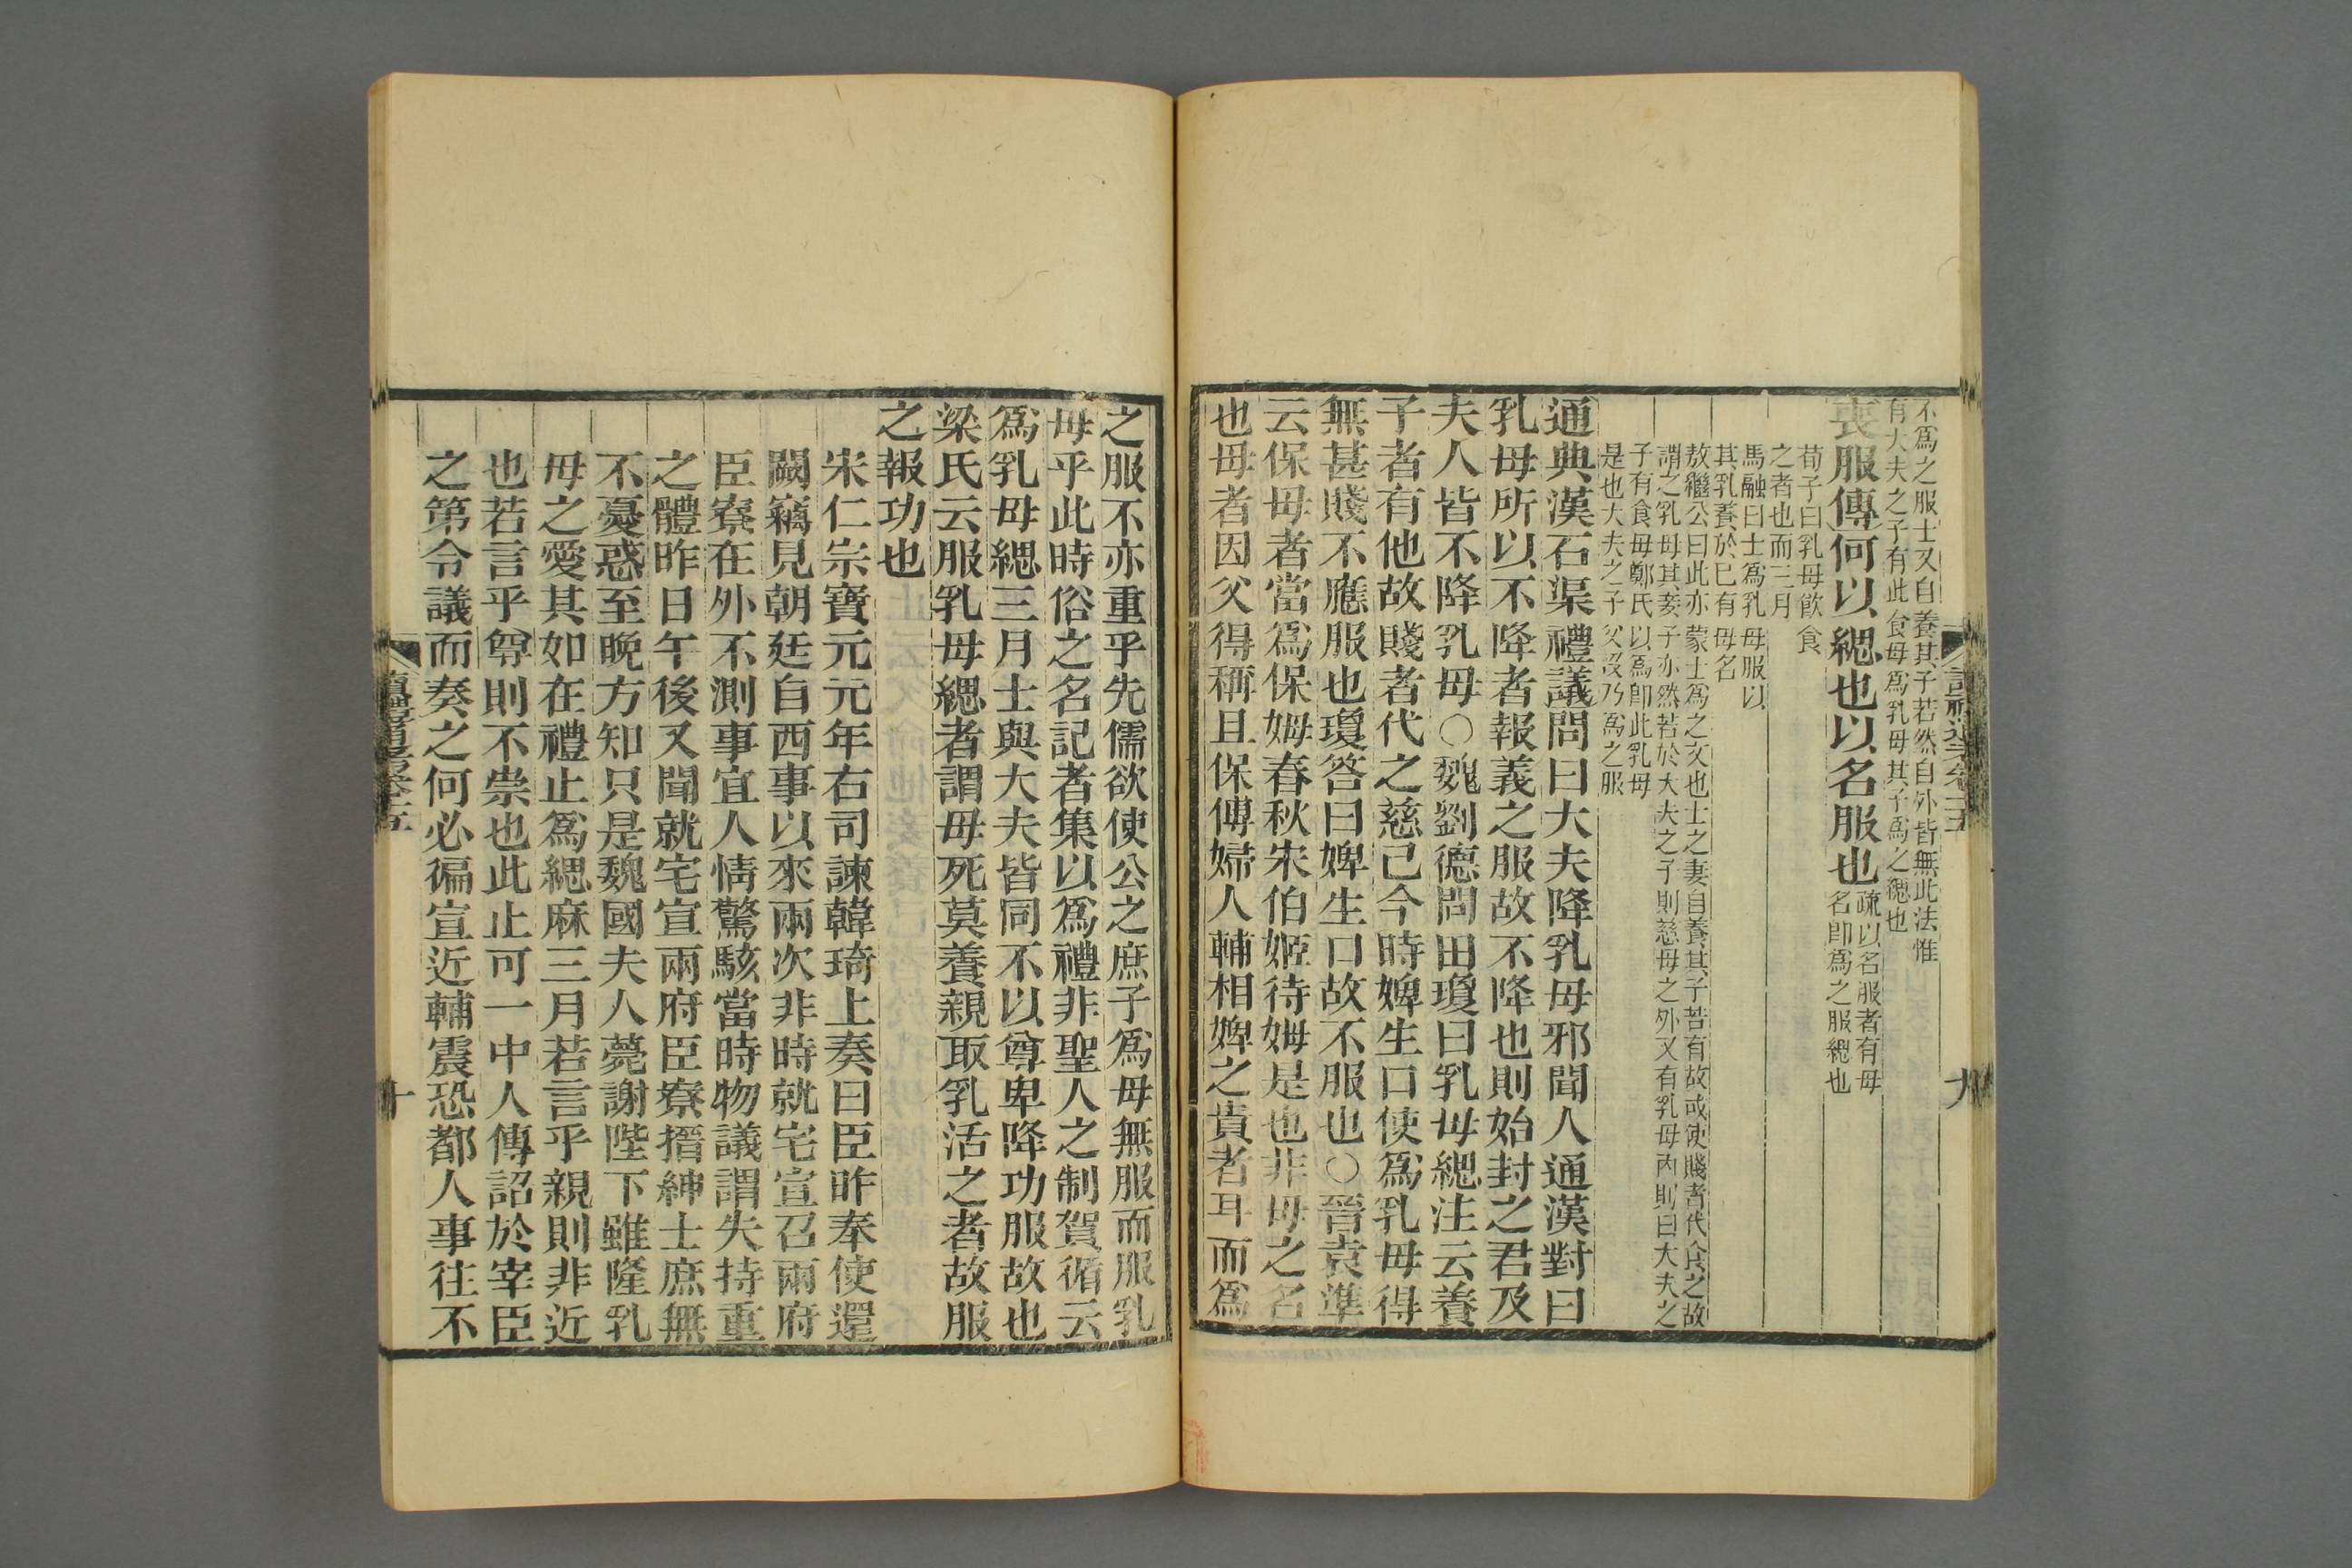 不爲之服士又自養其子若然自外皆無此法惟
有大夫之子有此食母爲乳母其子爲之緦也
喪服傳何以緦也以名服也
疏以名服者有母
名卽爲之服緦也
荀子曰乳母飮食
之者也而三月
馬融曰士爲乳母服以
其乳養於巳有母名
敖繼公曰此亦蒙士爲之文也士之妻自養其子若有故或使賤者代食之故
謂之乳母其妾子亦然若於大夫之子則慈母之外又有乳母內則曰大夫之
子有食母鄭氏以爲卽此乳母
是也大夫之子父沒乃爲之服
通典漢石渠禮議問曰大夫降乳母邪聞人通漢對曰
乳母所以不降者報義之服故不降也則始封之君及
夫人皆不降乳母○魏劉德問田瓊曰乳母緦注云養
子者有他故賤者代之慈己今時婢生口使爲乳母得
無甚賤不應服也瓊答曰婢生口故不服也○晉袁準
云保母者當爲保姆春秋宋伯姬待姆是也非母之名
也母者因父得稱且保傅婦人輔相婢之貴者耳而爲
之服不亦重乎先儒欲使公之庶子爲母無服而服乳
母乎此時俗之名記者集以爲禮非聖人之制賀循云
爲乳母緦三月士與大夫皆同不以尊卑降功服故也
梁氏云服乳母緦者謂母死莫養親取乳活之者故服
之報功也
宋仁宗寶元元年右司諫韓琦上奏曰臣昨奉使還
闕竊見朝廷自西事以來兩次非時就宅宣召兩府
臣寮在外不測事宜人情驚駭當時物議謂失持重
之體昨日午後又聞就宅宣兩府臣寮搢紳士庶無
不憂惑至晚方知只是魏國夫人薨謝陛下雖隆乳
母之愛其如在禮止爲緦麻三月若言乎親則非近
也若言乎尊則不崇也此止可一中人傳詔於宰臣
之第令議而奏之何必徧宣近輔震恐都人事往不
讀禮通考卷二十五
九
十